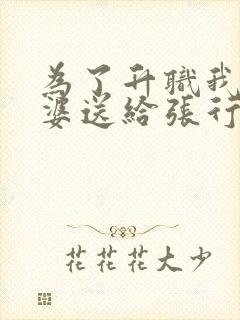 為了升職我
婆送給張行
花花花大少